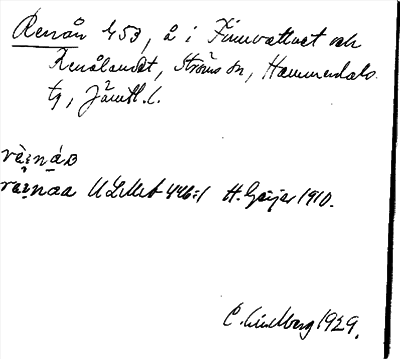 Renån 453, å i Finnvattnet och
Renålandet, Ströms sn, Hammerdals
tg, Jämtl. l.
rèi̯náɒ
rei̯naa ULMA 446:1 H. Geijer 1910.
C. Lindberg 1929.